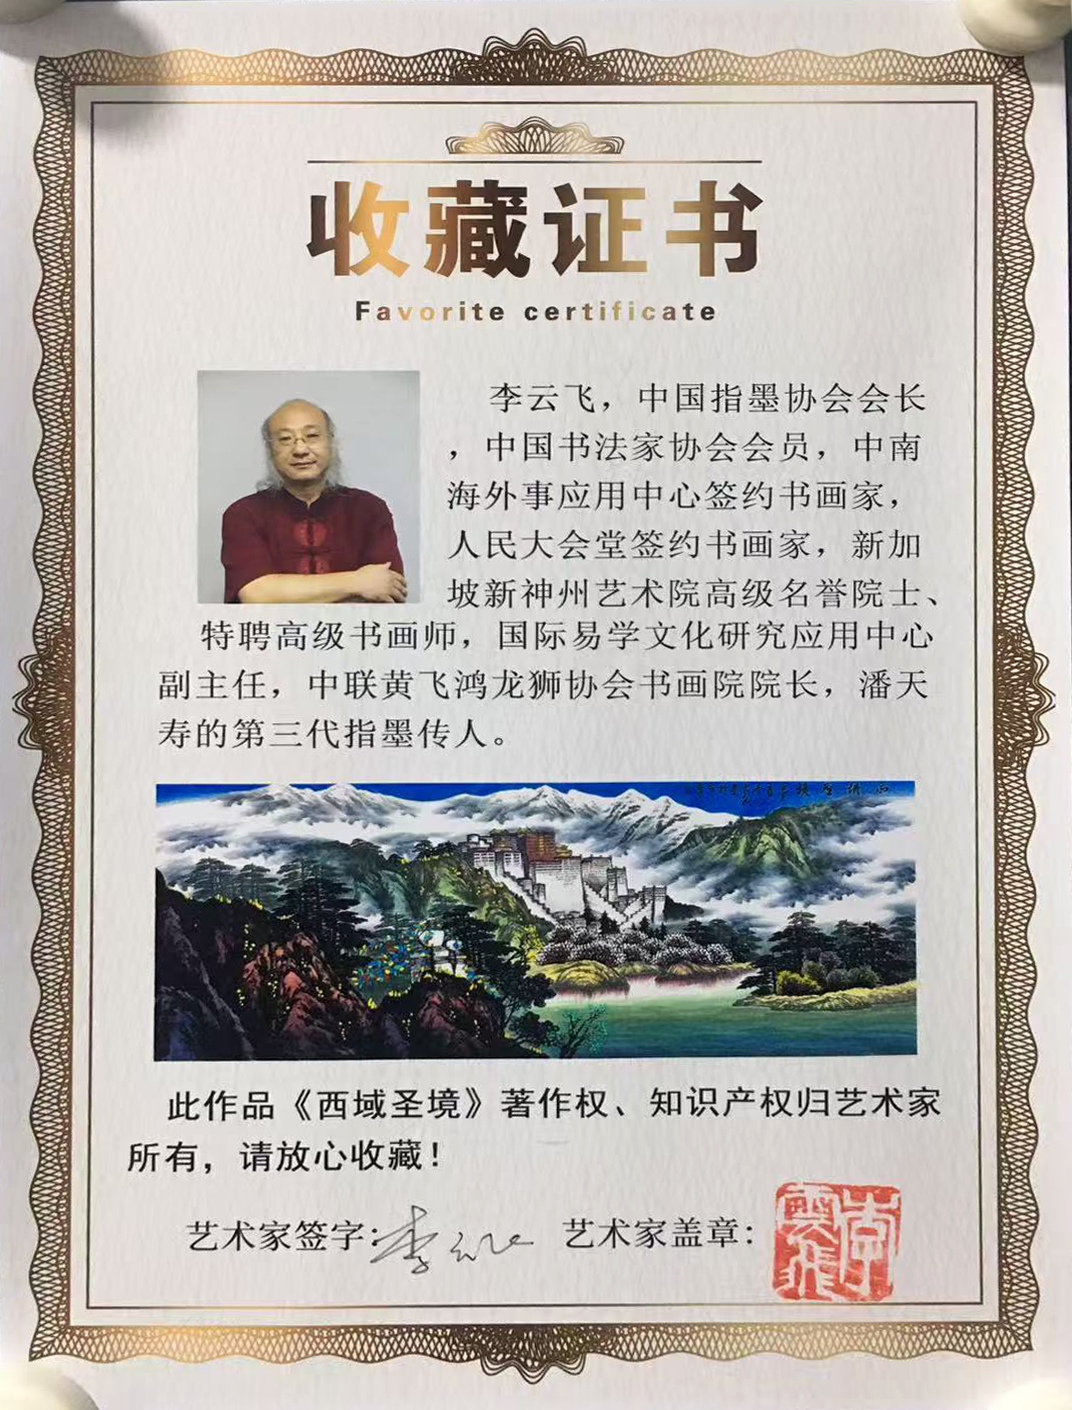 收藏证书
Favorite certificate
李云飞，中国指墨协会会长
，中国书法家协会会员，中南
海外事应用中心签约书画家，
人民大会堂签约书画家，新加
坡新神州艺术院高级名誉院士、
特聘高级书画师，国际易学文化研究应用中心
副主任，中联黄飞鸿龙狮协会书画院院长，潘天
寿的第三代指墨传人。
此作品《西域圣境》著作权、知识产权归艺术家
所有，请放心收藏！
艺术家签字：李云飞 艺术家盖章：
李雲飛